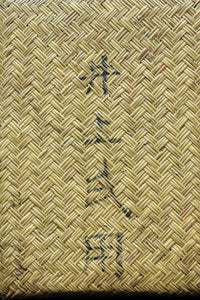 井上氏用